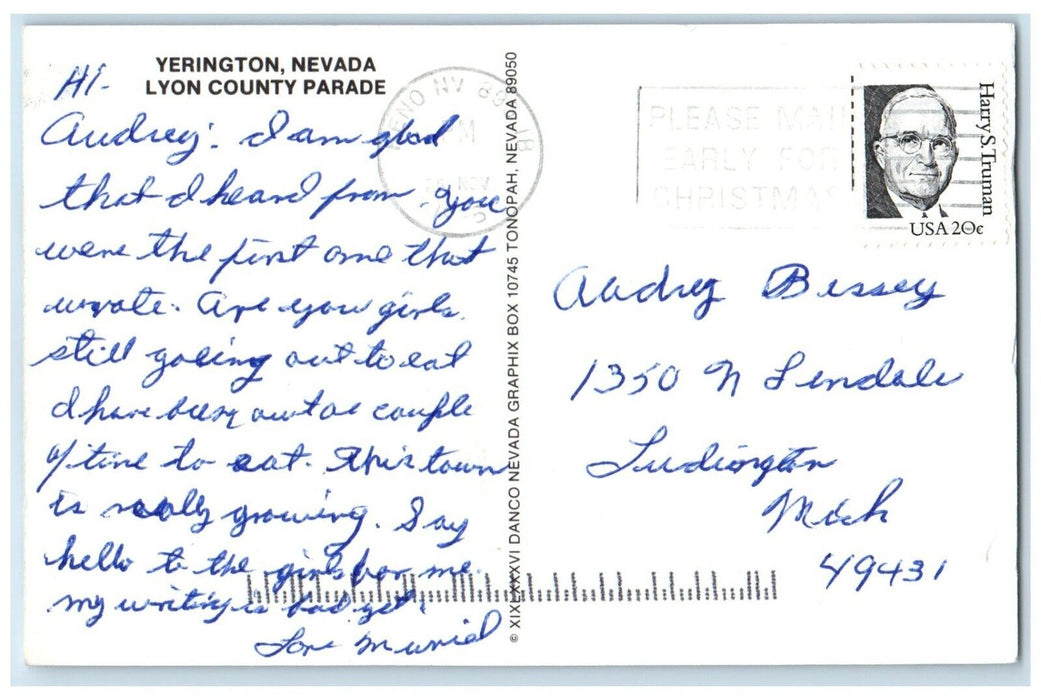 YERINGTON, NEVADA
LYON COUNTY PARADE
Hi-
Audrey: I am glad
that I heard from. you
were the first one that
wrote. Are you girls.
still going out to eat
I have been out a couple
of time to eat. This town
is really growing. Say
hello to the girls for me.
my writing is bad yet.
Love Muriel
© XIXLXXXVI DANCO NEVADA GRAPHIX BOX 10745 TONOPAH, NEVADA 89050
RENO NV 89
PM
NOV
PLEASE MAIL
EARLY FOR
CHRISTMAS
Harry S. Truman
USA 20c
Audrey Bessey
1350 N Lendale
Ludington
Mich
49431